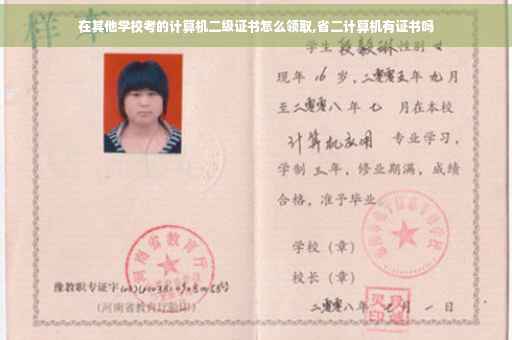 在其他学校考的计算机二级证书怎么领取,省二计算机有证书吗
样本
学生 段毅琳 性别 女
现年 16 岁,二零零五年 九月
至二零零八年 七 月在本校
计算机应用 专业学习,
学制 三年,修业期满,成绩
合格,准予毕业
学校(章)
校长(章)
二零零八年 月 一 日
河南省教育厅
豫教职专证字
(河南省教育厅验印)